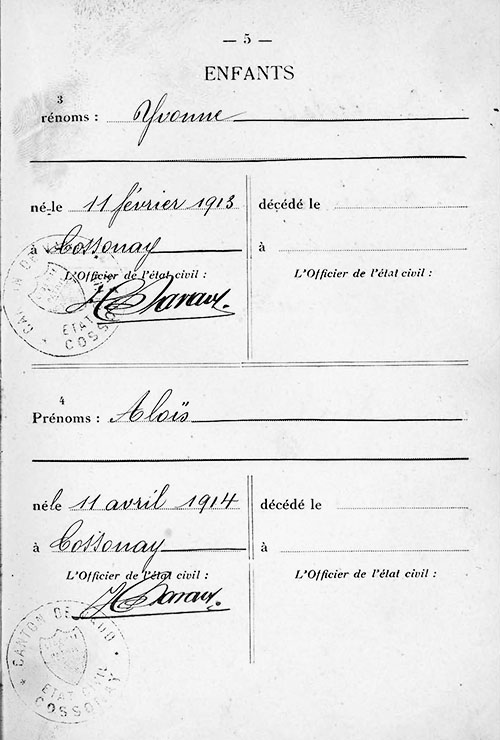 — 5 —
ENFANTS
3
rénoms : Yvonne
né-le 11 février 1913
décédé le
à Cossonay
à
L'Officier de l'état civil :
L'Officier de l'état civil :
ETAT
COSSO
4
Prénoms : Aloïs
né le 11 avril 1914
décédé le
à Cossonay
à
L'Officier de l'état civil :
L'Officier de l'état civil :
CANTON DE VAUD
ETAT CIVIL
COSSONAY